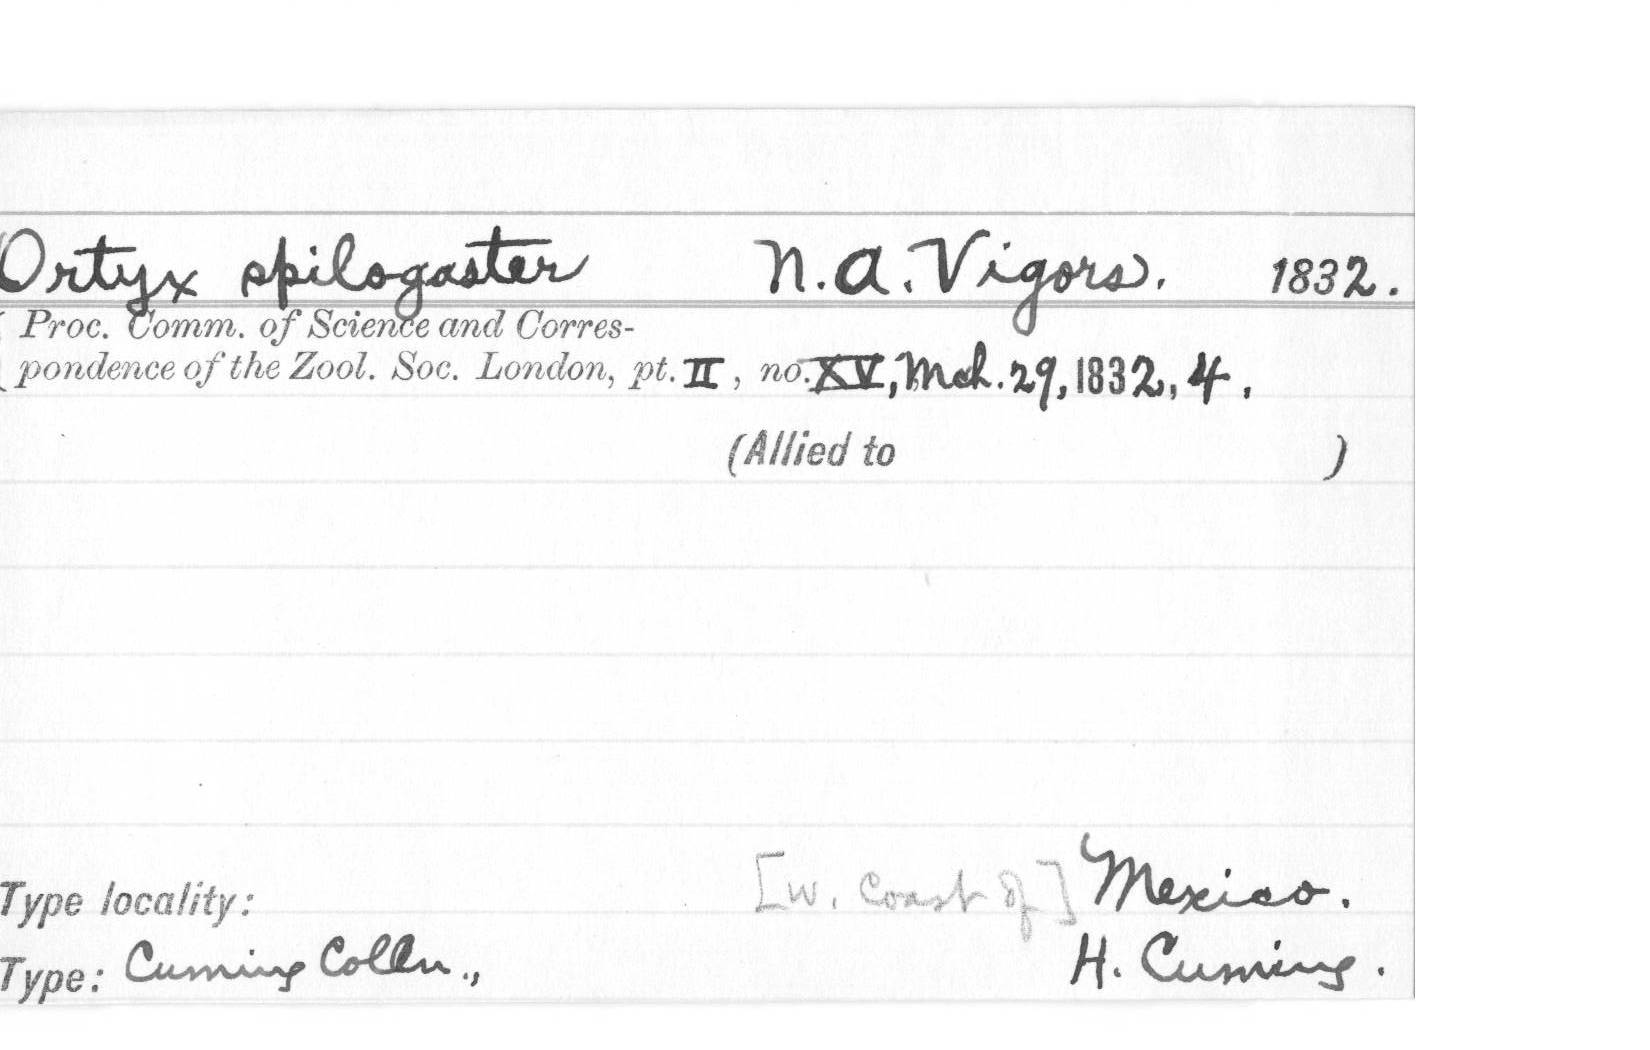 Ortyx spilogaster N. A. Vigors. 1832.
Proc. Comm. of Science and Corres-
pondence of the Zool. Soc. London, pt. II, no. XV, Mch. 29, 1832, 4.
(Allied to )
Type locality: [W. Coast of] Mexico.
Type: Cuming Colln., H. Cuming.